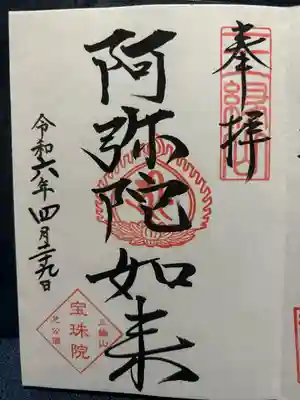 奉拝
三縁山
阿弥陀如来
令和六年四月二十九日
三縁山
宝珠院
芝公園